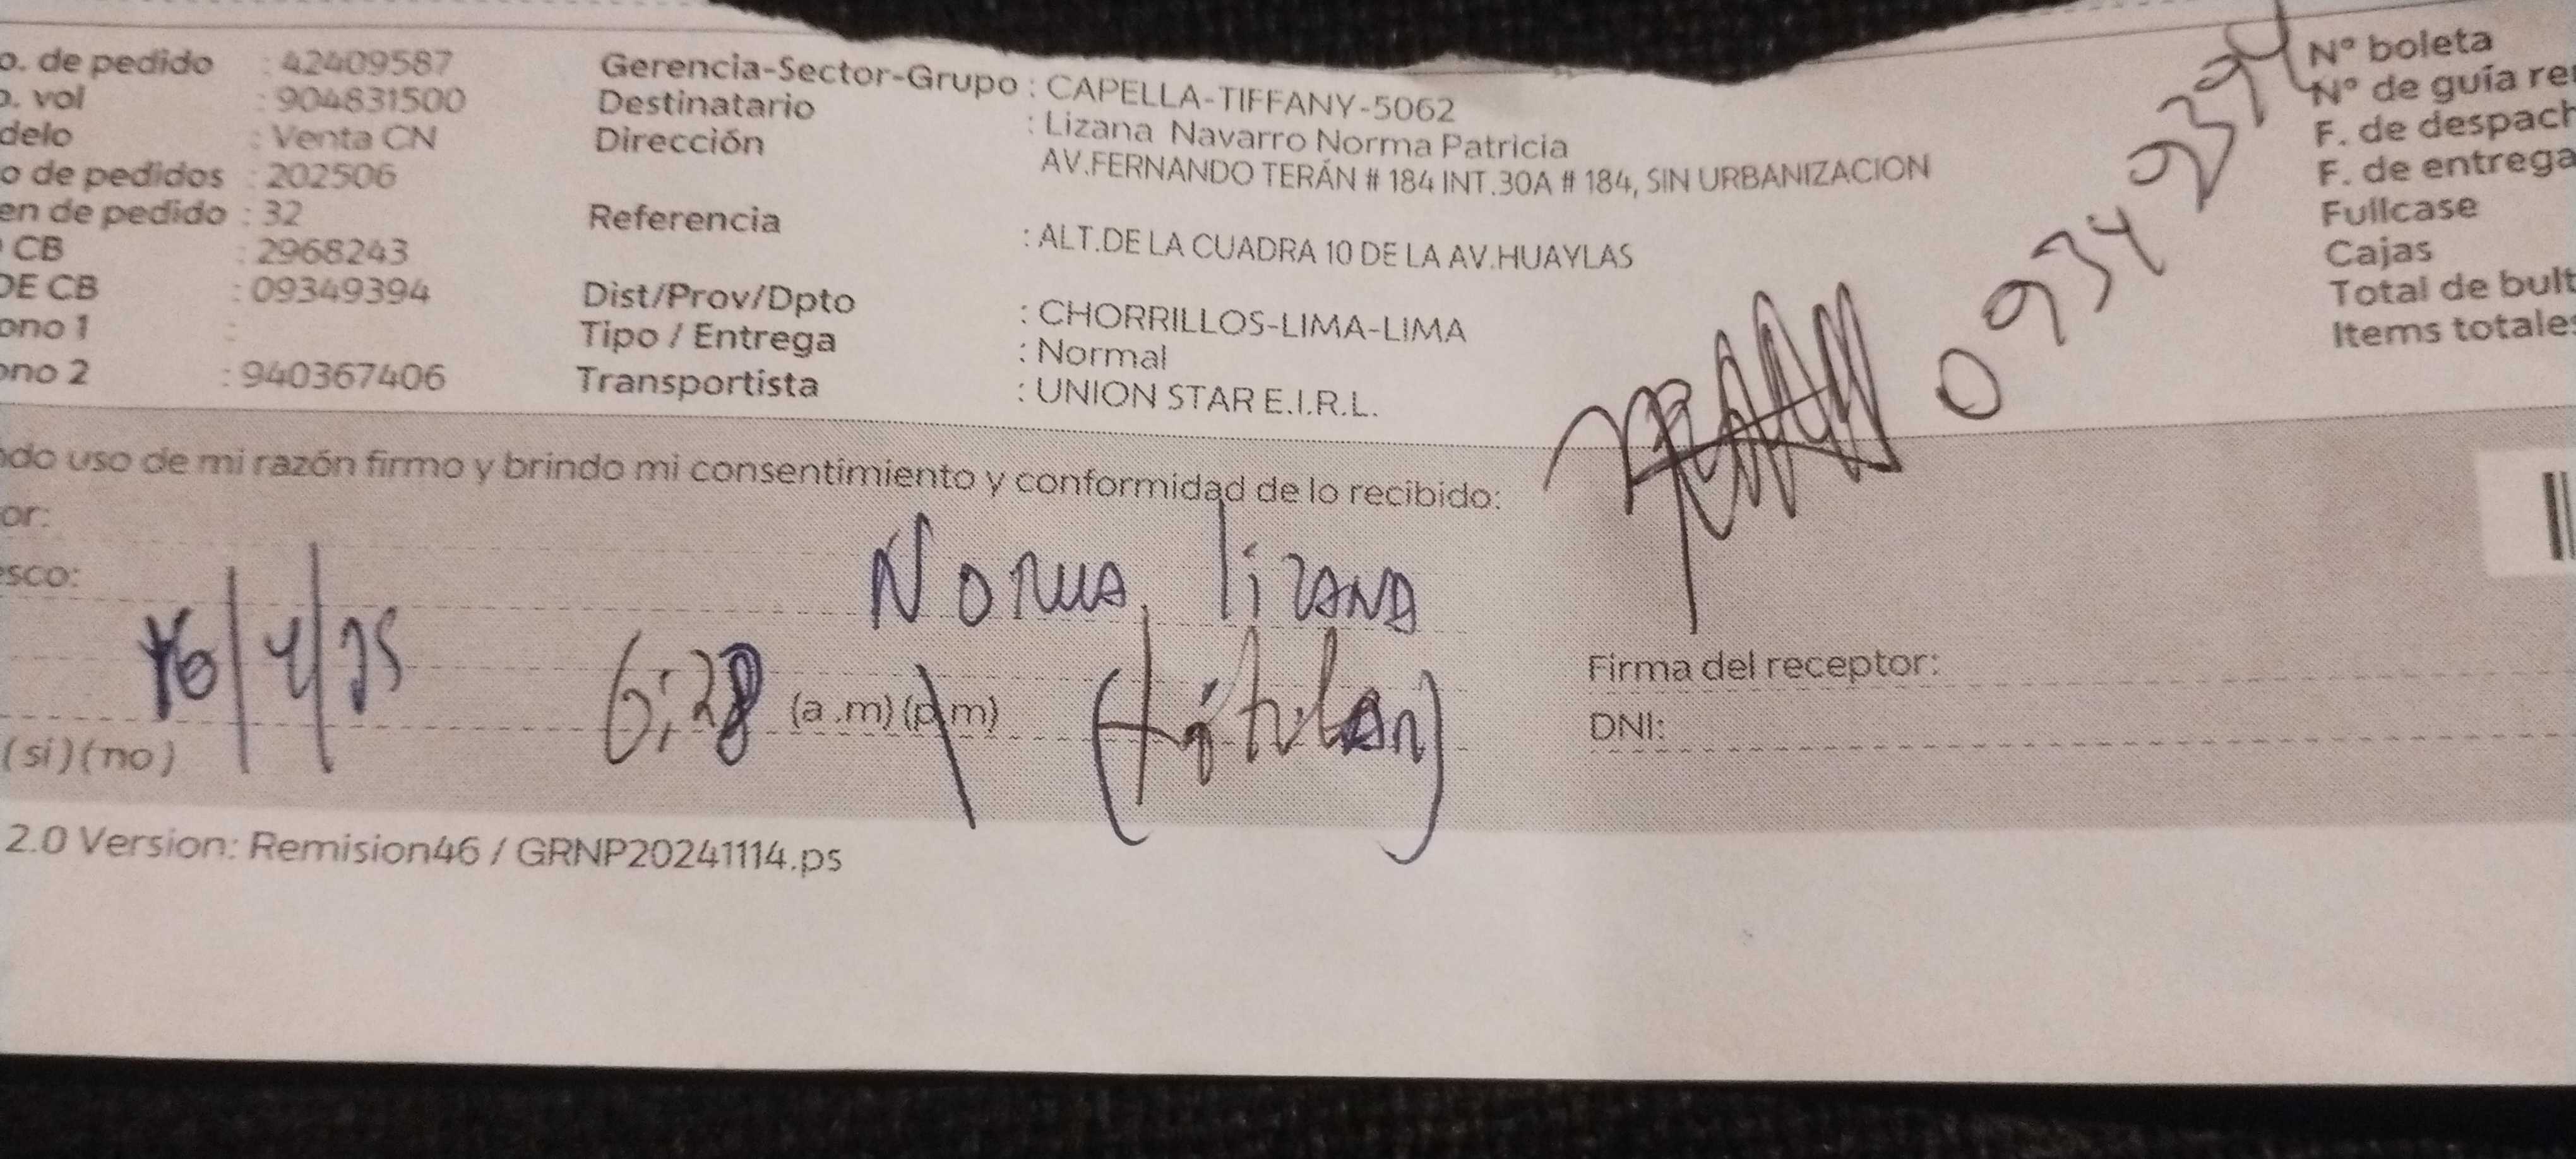 o. de pedido : 42409587
o. vol : 904831500
delo : Venta CN
o de pedidos : 202506
en de pedido : 32
CB : 2968243
DE CB : 09349394
ono 1 :
ono 2 : 940367406
Gerencia-Sector-Grupo : CAPELLA-TIFFANY-5062
Destinatario : Lizana Navarro Norma Patricia
Dirección AV.FERNANDO TERÁN # 184 INT.30A # 184, SIN URBANIZACION
Referencia : ALT.DE LA CUADRA 10 DE LA AV.HUAYLAS
Dist/Prov/Dpto : CHORRILLOS-LIMA-LIMA
Tipo / Entrega : Normal
Transportista : UNION STAR E.I.R.L.
N° boleta
N° de guía re
F. de despach
F. de entrega
Fullcase
Cajas
Total de bult
Items totales
09349394
ndo uso de mi razón firmo y brindo mi consentimiento y conformidad de lo recibido:
or:
esco:
Norma lizana
16/4/25
6:28 (a .m) (p.m)
(titular)
(si) (no)
Firma del receptor:
DNI:
2.0 Version: Remision46 / GRNP20241114.ps